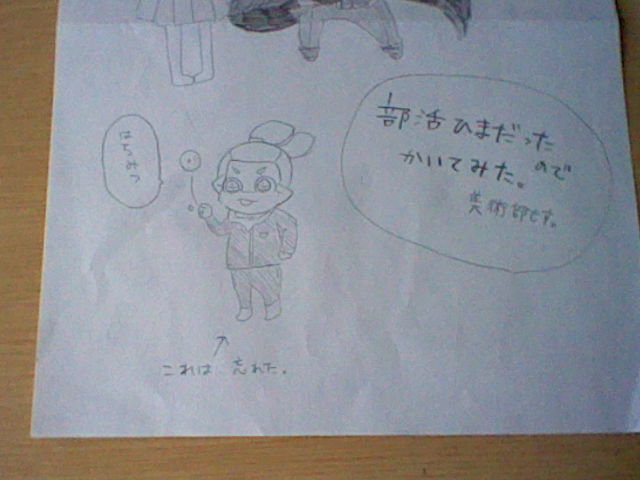 部活ひまだった
ので
かいてみた。
美術部です。
はちみつ
これは 忘れた。